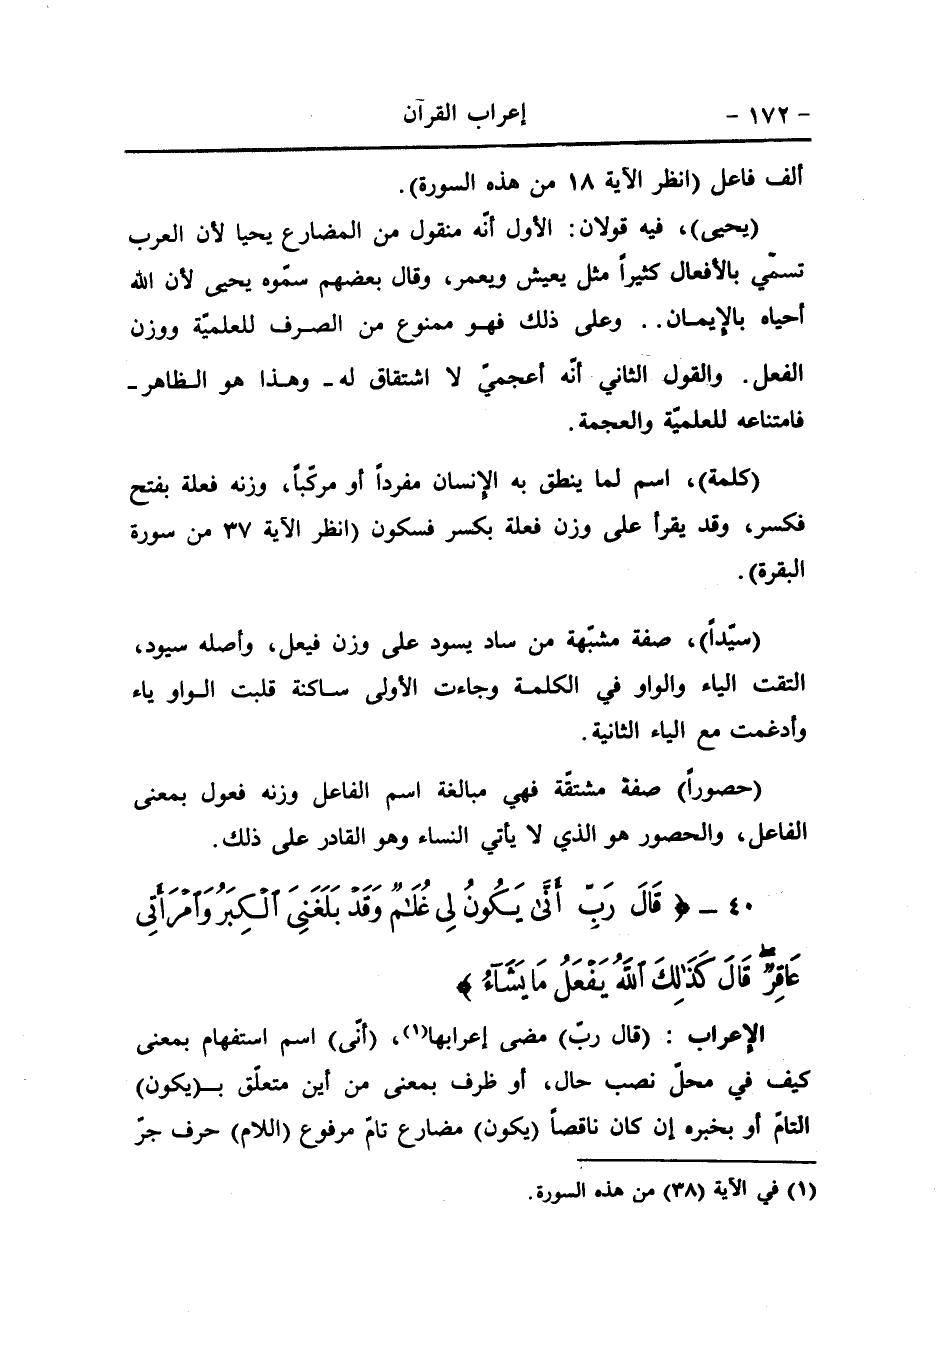 - ١٧٢ - إعراب القرآن
ألف فاعل (انظر الآية ١٨ من هذه السورة).
(يحيى)، فيه قولان: الأول أنّه منقول من المضارع يحيا لأن العرب
تسمّي بالأفعال كثيراً مثل يعيش ويعمر، وقال بعضهم سمّوه يحيى لأن الله
أحياه بالإيمـان.. وعلى ذلك فهـو ممنوع من الصـرف للعلميّة ووزن
الفعل. والقول الثاني أنّه أعجميّ لا اشتقاق له- وهـذا هو الـظاهر-
فامتناعه للعلميّة والعجمة.
(كلمة)، اسم لما ينطق به الإنسان مفرداً أو مركّباً، وزنه فعلة بفتح
فكسر، وقد يقرأ على وزن فعلة بكسر فسكون (انظر الآية ٣٧ من سورة
البقرة).
(سيّداً)، صفة مشبّهة من ساد يسود على وزن فيعل، وأصله سيود،
التقت الياء والواو في الكلمـة وجاءت الأولى سـاكنة قلبت الـواو ياء
وأدغمت مع الياء الثانية.
(حصوراً) صفة مشتقّة فهي مبالغة اسم الفاعل وزنه فعول بمعنى
الفاعل، والحصور هو الذي لا يأتي النساء وهو القادر على ذلك.
٤٠ - ﴿ قَالَ رَبِّ أَنَّىٰ يَكُونُ لِي غُلَـٰمٌ وَقَدْ بَلَغَنِيَ ٱلْكِبَرُ وَٱمْرَأَتِي
عَاقِرٌۖ قَالَ كَذَٰلِكَ ٱللَّهُ يَفْعَلُ مَا يَشَآءُ ﴾
الإعراب : (قال ربّ) مضى إعرابها(١)، (أنّى) اسم استفهام بمعنى
كيف في محلّ نصب حال، أو ظرف بمعنى من أين متعلّق بـ(يكون)
التامّ أو بخبره إن كان ناقصاً (يكون) مضارع تامّ مرفوع (اللام) حرف جرّ
(١) في الآية (٣٨) من هذه السورة.